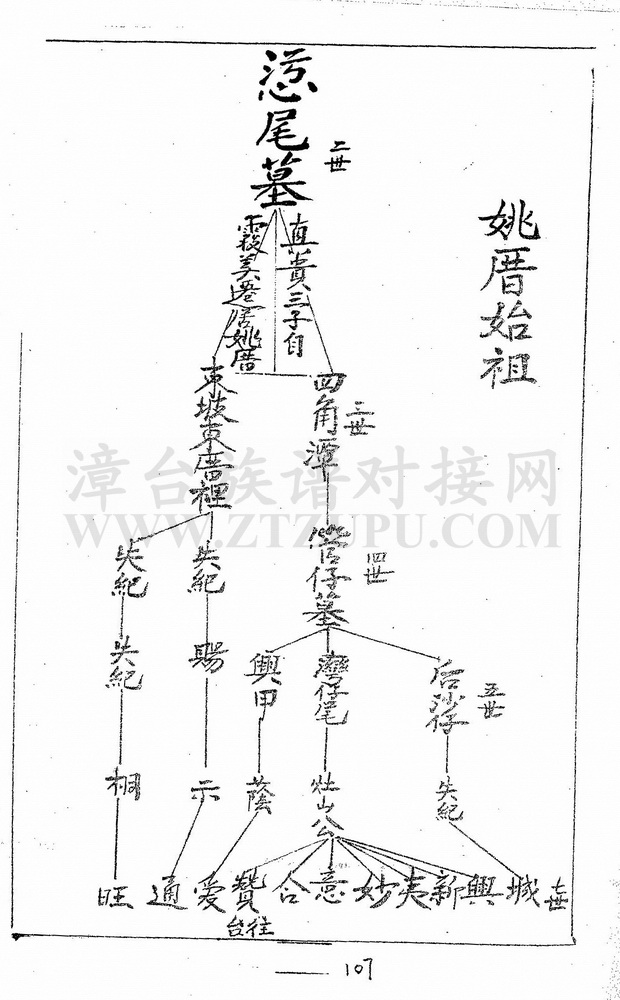 姚厝始祖
尾墓
二世
直貴三子自
霞美遷居姚厝
四角潭
三世
東坡東厝裡
漳台族谱对接网
WWW.ZTZUPU.COM
營仔墓
四世
失紀
失紀
后沙仔
五世
灣仔尾
興甲
賜
失紀
失紀
灶山公
蔭
示
桐
城
興
新
夷
妙
意
合
贊
往台
愛
通
旺
七世
107